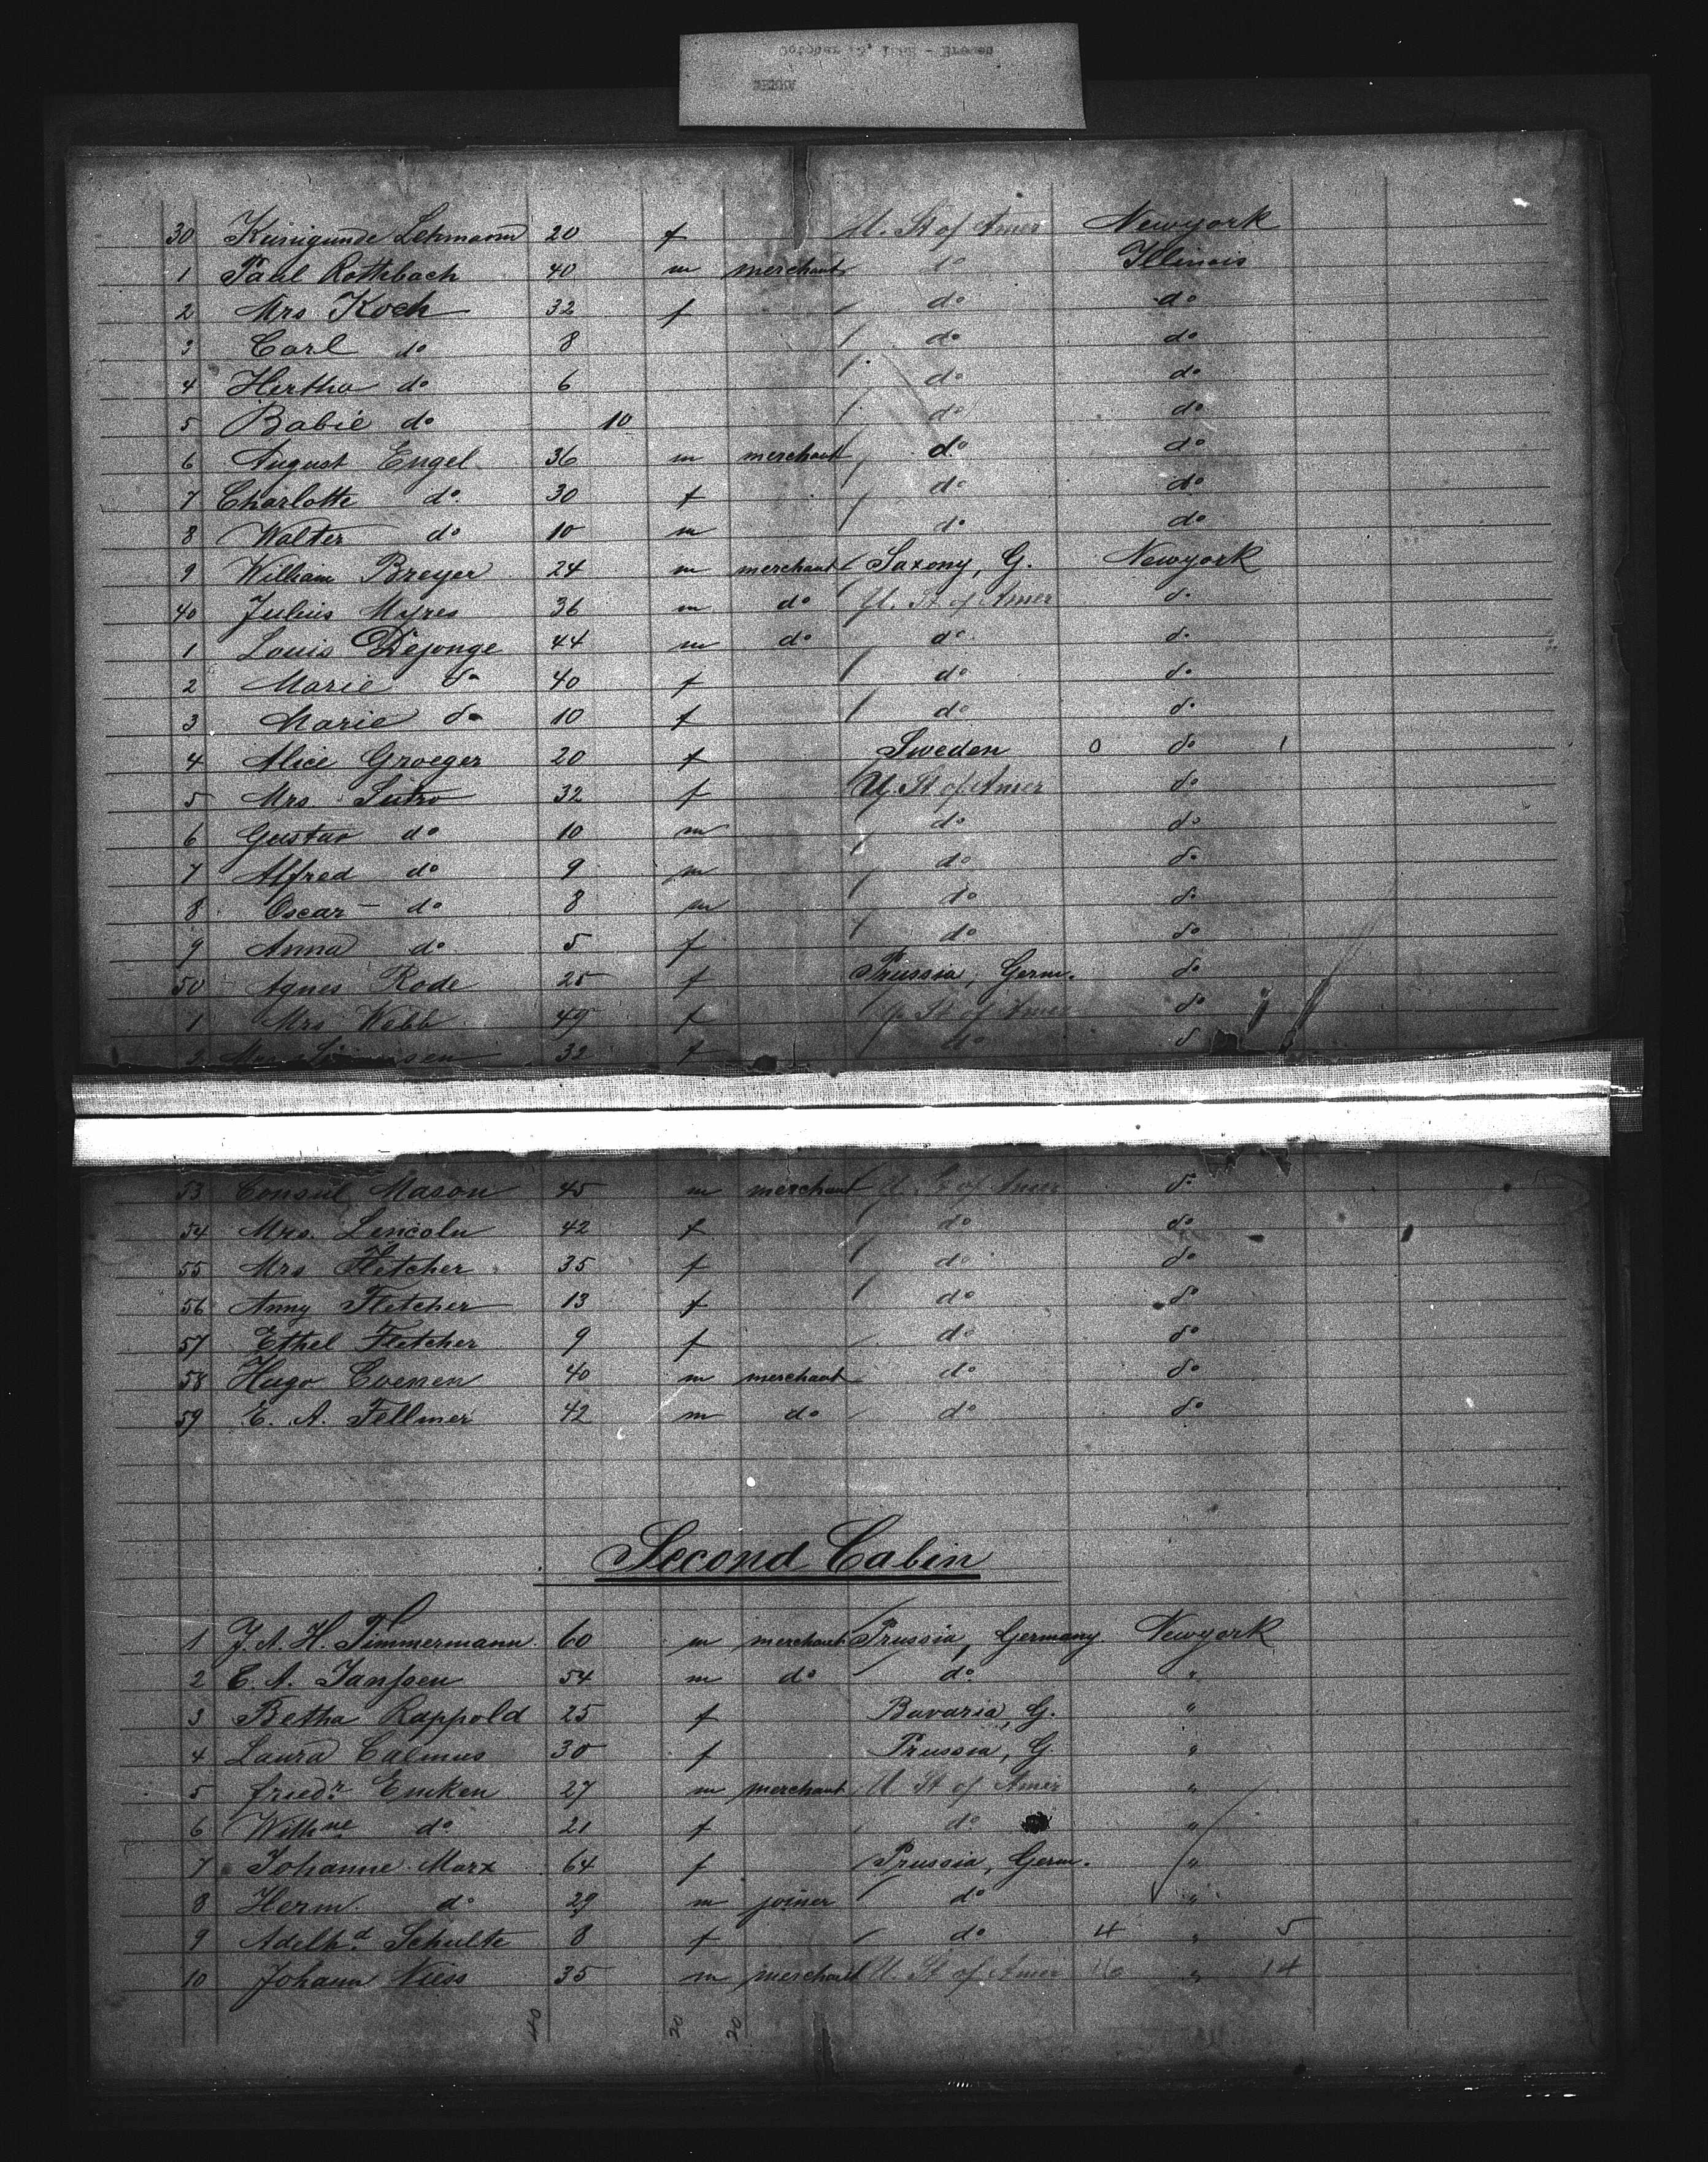 30 Kunigunde Lehmann 20 f U. St of Amer Newyork
1 Paul Rothbach 40 m merchant do Illinois
2 Mrs Koch 32 f do do
3 Carl do 8 do do
4 Hertha do 6 do do
5 Babie do 10 do do
6 August Engel 36 m merchant do do
7 Charlotte do 30 f do do
8 Walter do 10 m do do
9 William Breyer 24 m merchant Saxony, G. Newyork
40 Julius Myres 36 m do U. St of Amer do
1 Louis Dejonge 44 m do do do
2 Marie do 40 f do do
3 Marie do 10 f do do
4 Alice Groeger 20 f Sweden 0 do 1
5 Mrs Sutro 32 f U. St of Amer do
6 Gustav do 10 m do do
7 Alfred do 9 m do do
8 Oscar do 8 m do do
9 Anna do 5 f do do
50 Agnes Rode 25 f Prussia, Germ. do
1 Mrs Webb 49 f U. St of Amer do
2 32 f do do
53 Consul Mason 45 m merchant U. St of Amer do
54 Mrs. Lincoln 42 f do do
55 Mrs Fletcher 35 f do do
56 Anny Fletcher 13 f do do
57 Ethel Fletcher 9 f do do
58 Hugo Coenen 40 m merchant do do
59 E. A. Fellmer 42 m do do do
Second Cabin
1 J. A. H. Timmermann 60 m merchant Prussia, Germany Newyork
2 C. A. Janssen 54 m do do "
3 Betha Rappold 25 f Bavaria, G. "
4 Laura Calmus 30 f Prussia, G. "
5 Friedr. Emken 27 m merchant U. St of Amer "
6 Wilhne do 21 f do "
7 Johanne Marx 64 f Prussia, Germ. "
8 Herm. do 29 m joiner do "
9 Adelhd Schulte 8 f do 4 " 5
10 Johann Niess 35 m merchant U. St of Amer " 14
40 20 20